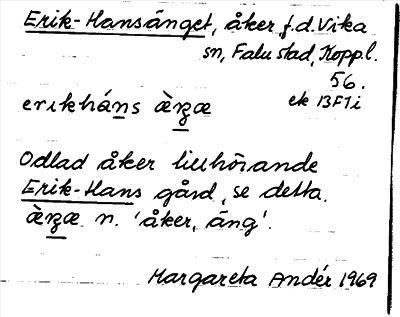 Erik-Hansänget, åker f.d. Vika
sn, Falu stad, Kopp.l.
56.
ek 13F1i
erıkháns ὰ̀ʒæ
Odlad åker tillhörande
Erik-Hans gård, se detta.
ʒæ n. 'åker, äng'.
Margareta Andér 1969